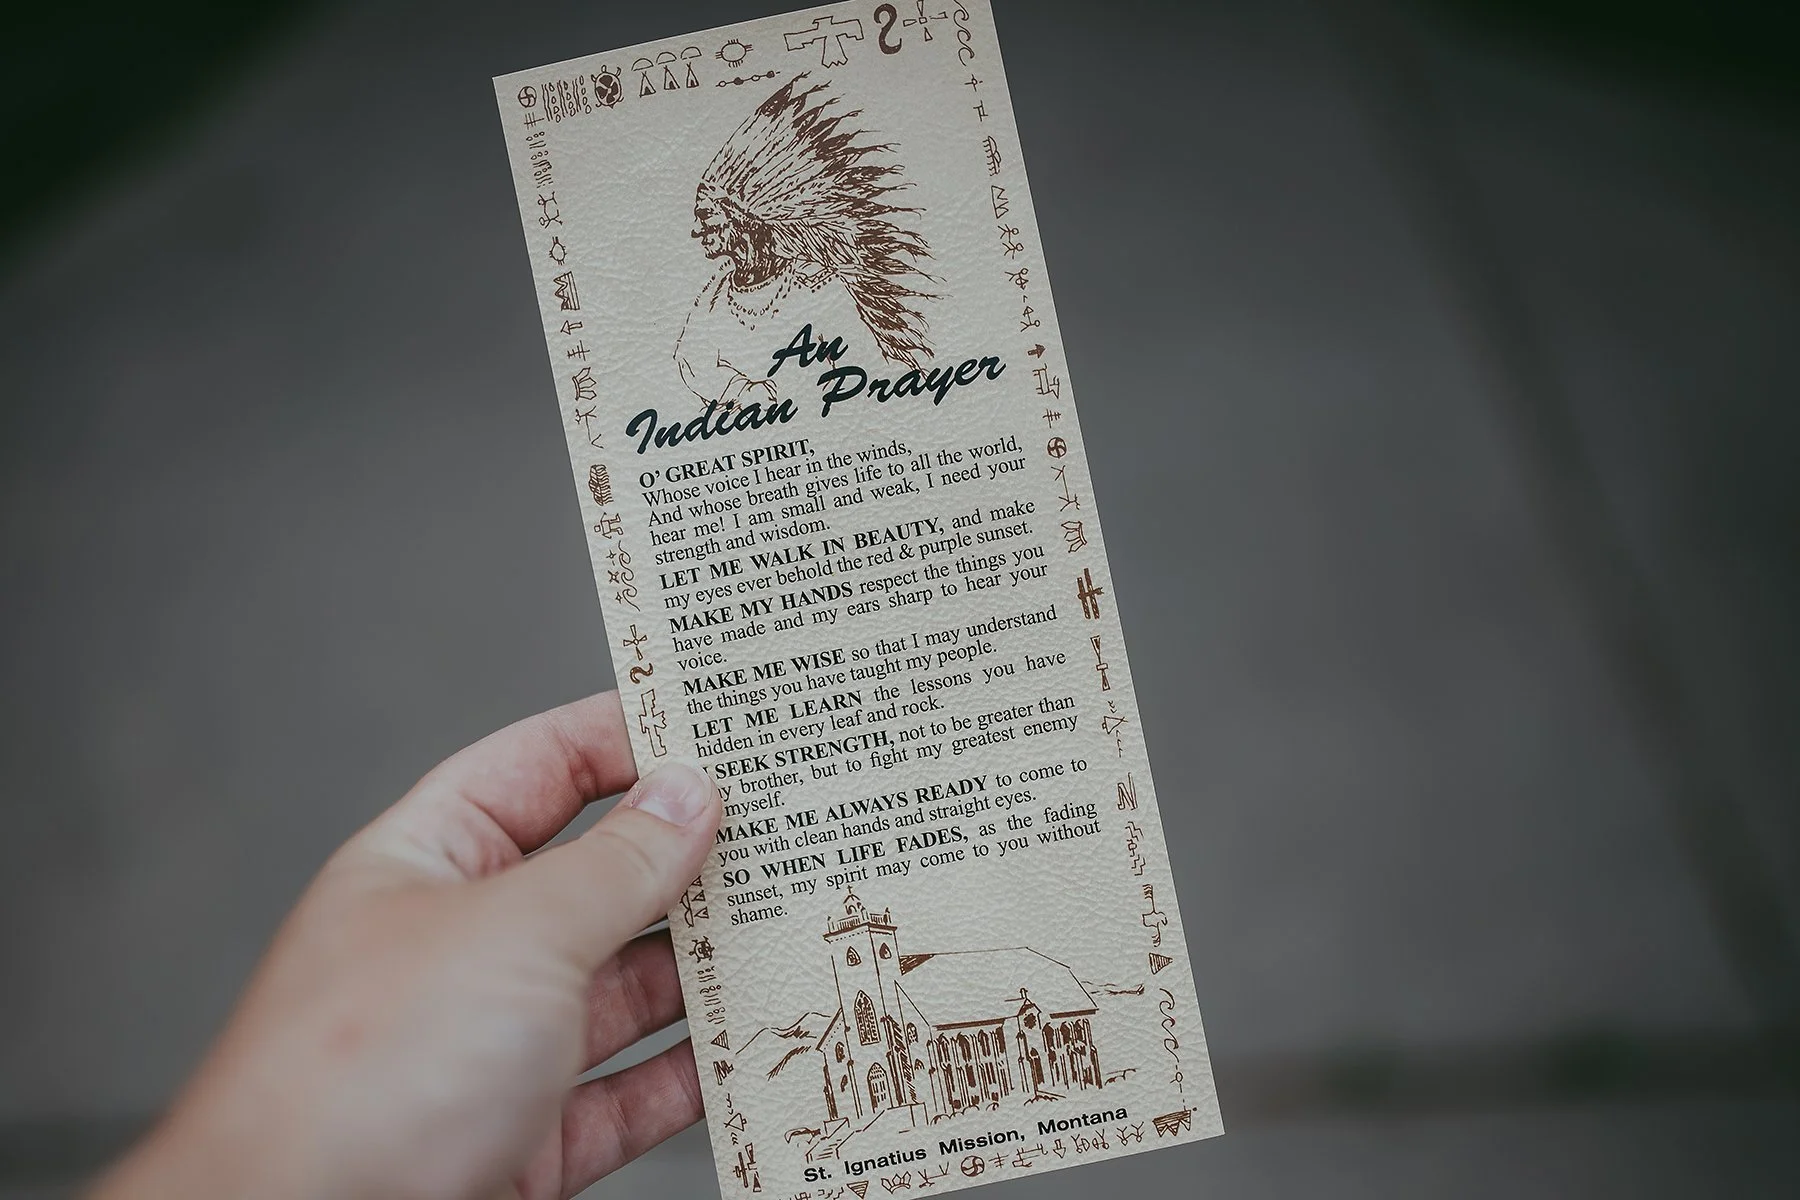 An
Indian Prayer
O' GREAT SPIRIT,
Whose voice I hear in the winds,
And whose breath gives life to all the world,
hear me! I am small and weak, I need your
strength and wisdom.
LET ME WALK IN BEAUTY, and make
my eyes ever behold the red & purple sunset.
MAKE MY HANDS respect the things you
have made and my ears sharp to hear your
voice.
MAKE ME WISE so that I may understand
the things you have taught my people.
LET ME LEARN the lessons you have
hidden in every leaf and rock.
I SEEK STRENGTH, not to be greater than
brother, but to fight my greatest enemy
myself.
MAKE ME ALWAYS READY to come to
you with clean hands and straight eyes.
SO WHEN LIFE FADES, as the fading
sunset, my spirit may come to you without
shame.
St. Ignatius Mission, Montana